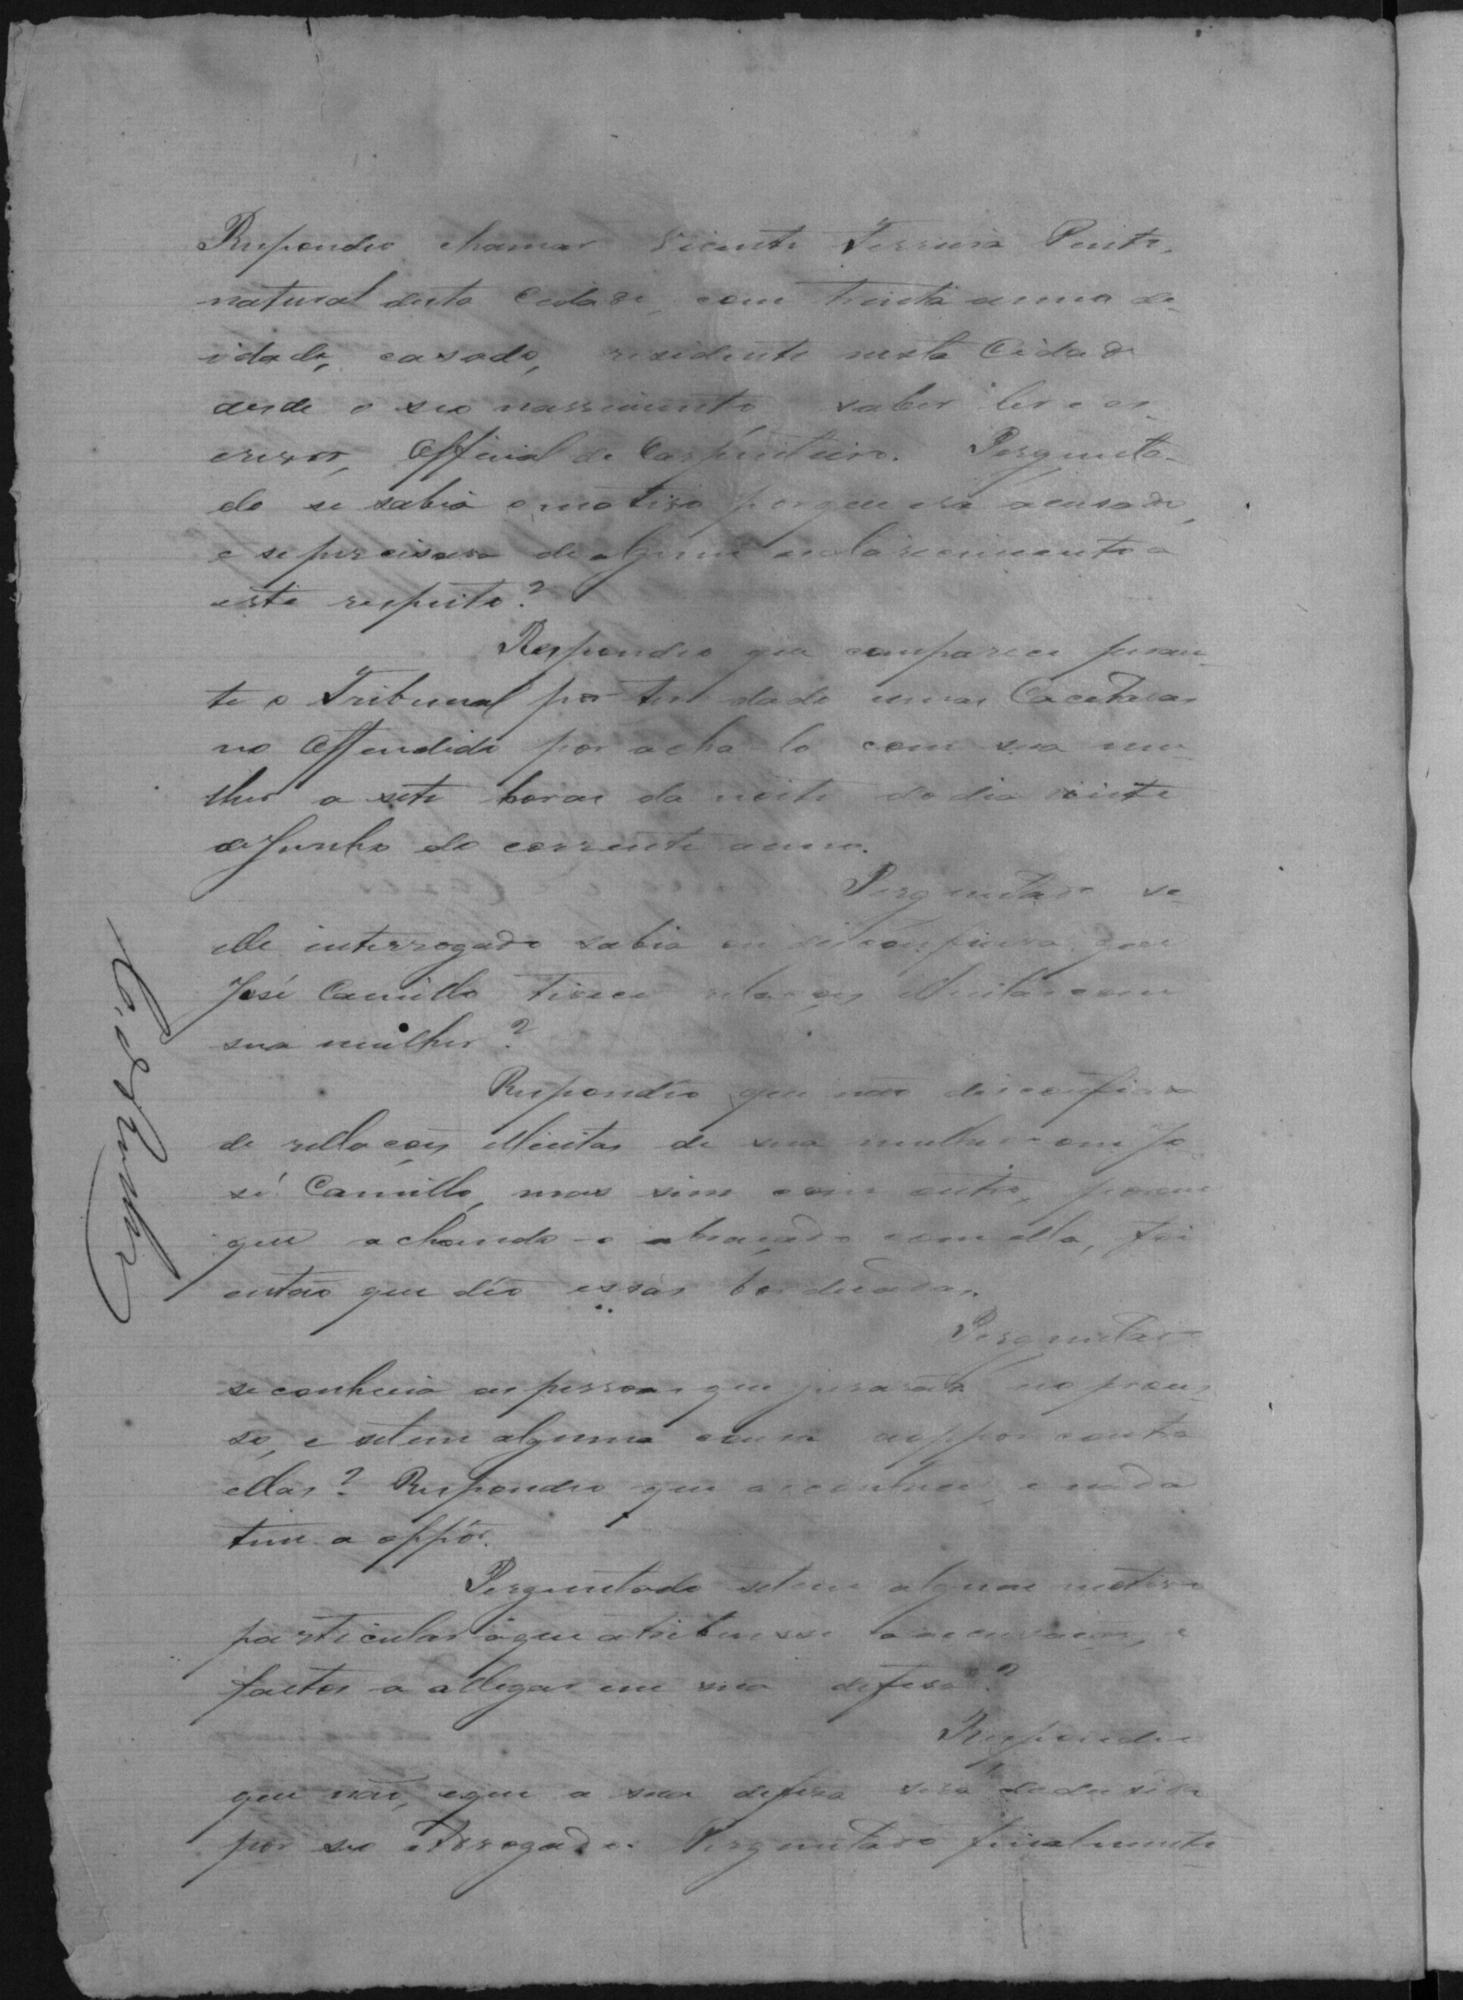 Respondeo chamar Vicente Ferreira
natural desta Cidade, com trinta annos de
idade, casado, residente nesta Cidade
desde o seo nascimento, saber ler e es-
crever, Official de Carpinteiro. Pergunta-
do se sabia o motivo porque era acusado,
e se precisava de algum esclarecimento a
este respeito?
Respondeo que comparece peran-
te o Tribunal por ter dado umas Cacetadas
no Offendido por acha-lo com sua mu-
lher a sete horas da noite do dia vinte
de Junho do corrente anno.
Perguntado se
elle interrogado sabia ou desconfiava que
José Camillo tivece relações illicitas com
sua mulher?
Respondeo que não desconfiava
de rellações illicitas de sua mulher com Jo-
sé Camillo, mas sim com outro, porem
que achando-o abraçado com ella, foi
então que déo essas bordoadas.
Perguntado
se conhecia as pessoas que jurarão no proces-
so, e se tem alguma cousa a oppor contra
ellas? Respondeo que as conhece, e nada
tem a oppôr.
Perguntado se tem algum motivo
particular a que atribuisse a accusação, e
factos a allegar em sua defesa?
Respondeo
que não, e que a sua defesa será dedusida
por seo Advogado. Perguntado finalmente